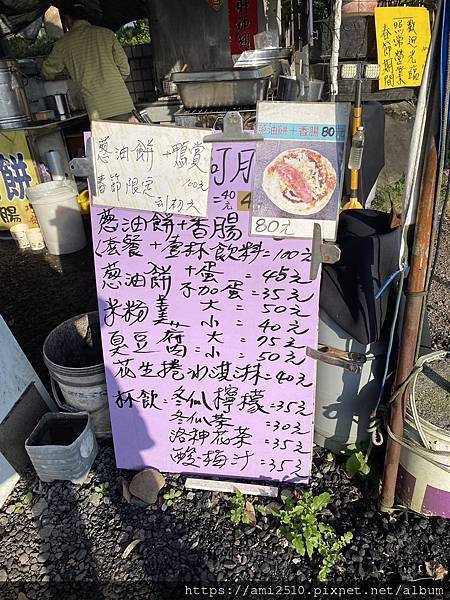 歡迎光臨
春節期間
照常營業
餅
腸
蔥油餅+鴨賞
春節限定 100元
到初六
可月
=40元
4
蔥油餅+香腸80元
80元
蔥油餅+香腸
(套餐+壹杯飲料=100元
蔥油餅 +蛋 = 45元
不加蛋=35元
米粉羹 大 = 50元
小 = 40元
臭豆腐 大 = 75元
小 = 50元
花生捲冰淇淋=40元
杯飲:冬瓜檸檬=35元
冬瓜茶 =30元
洛神花茶 =35元
酸梅汁=35元
https://ami2510.pixnet.net/album